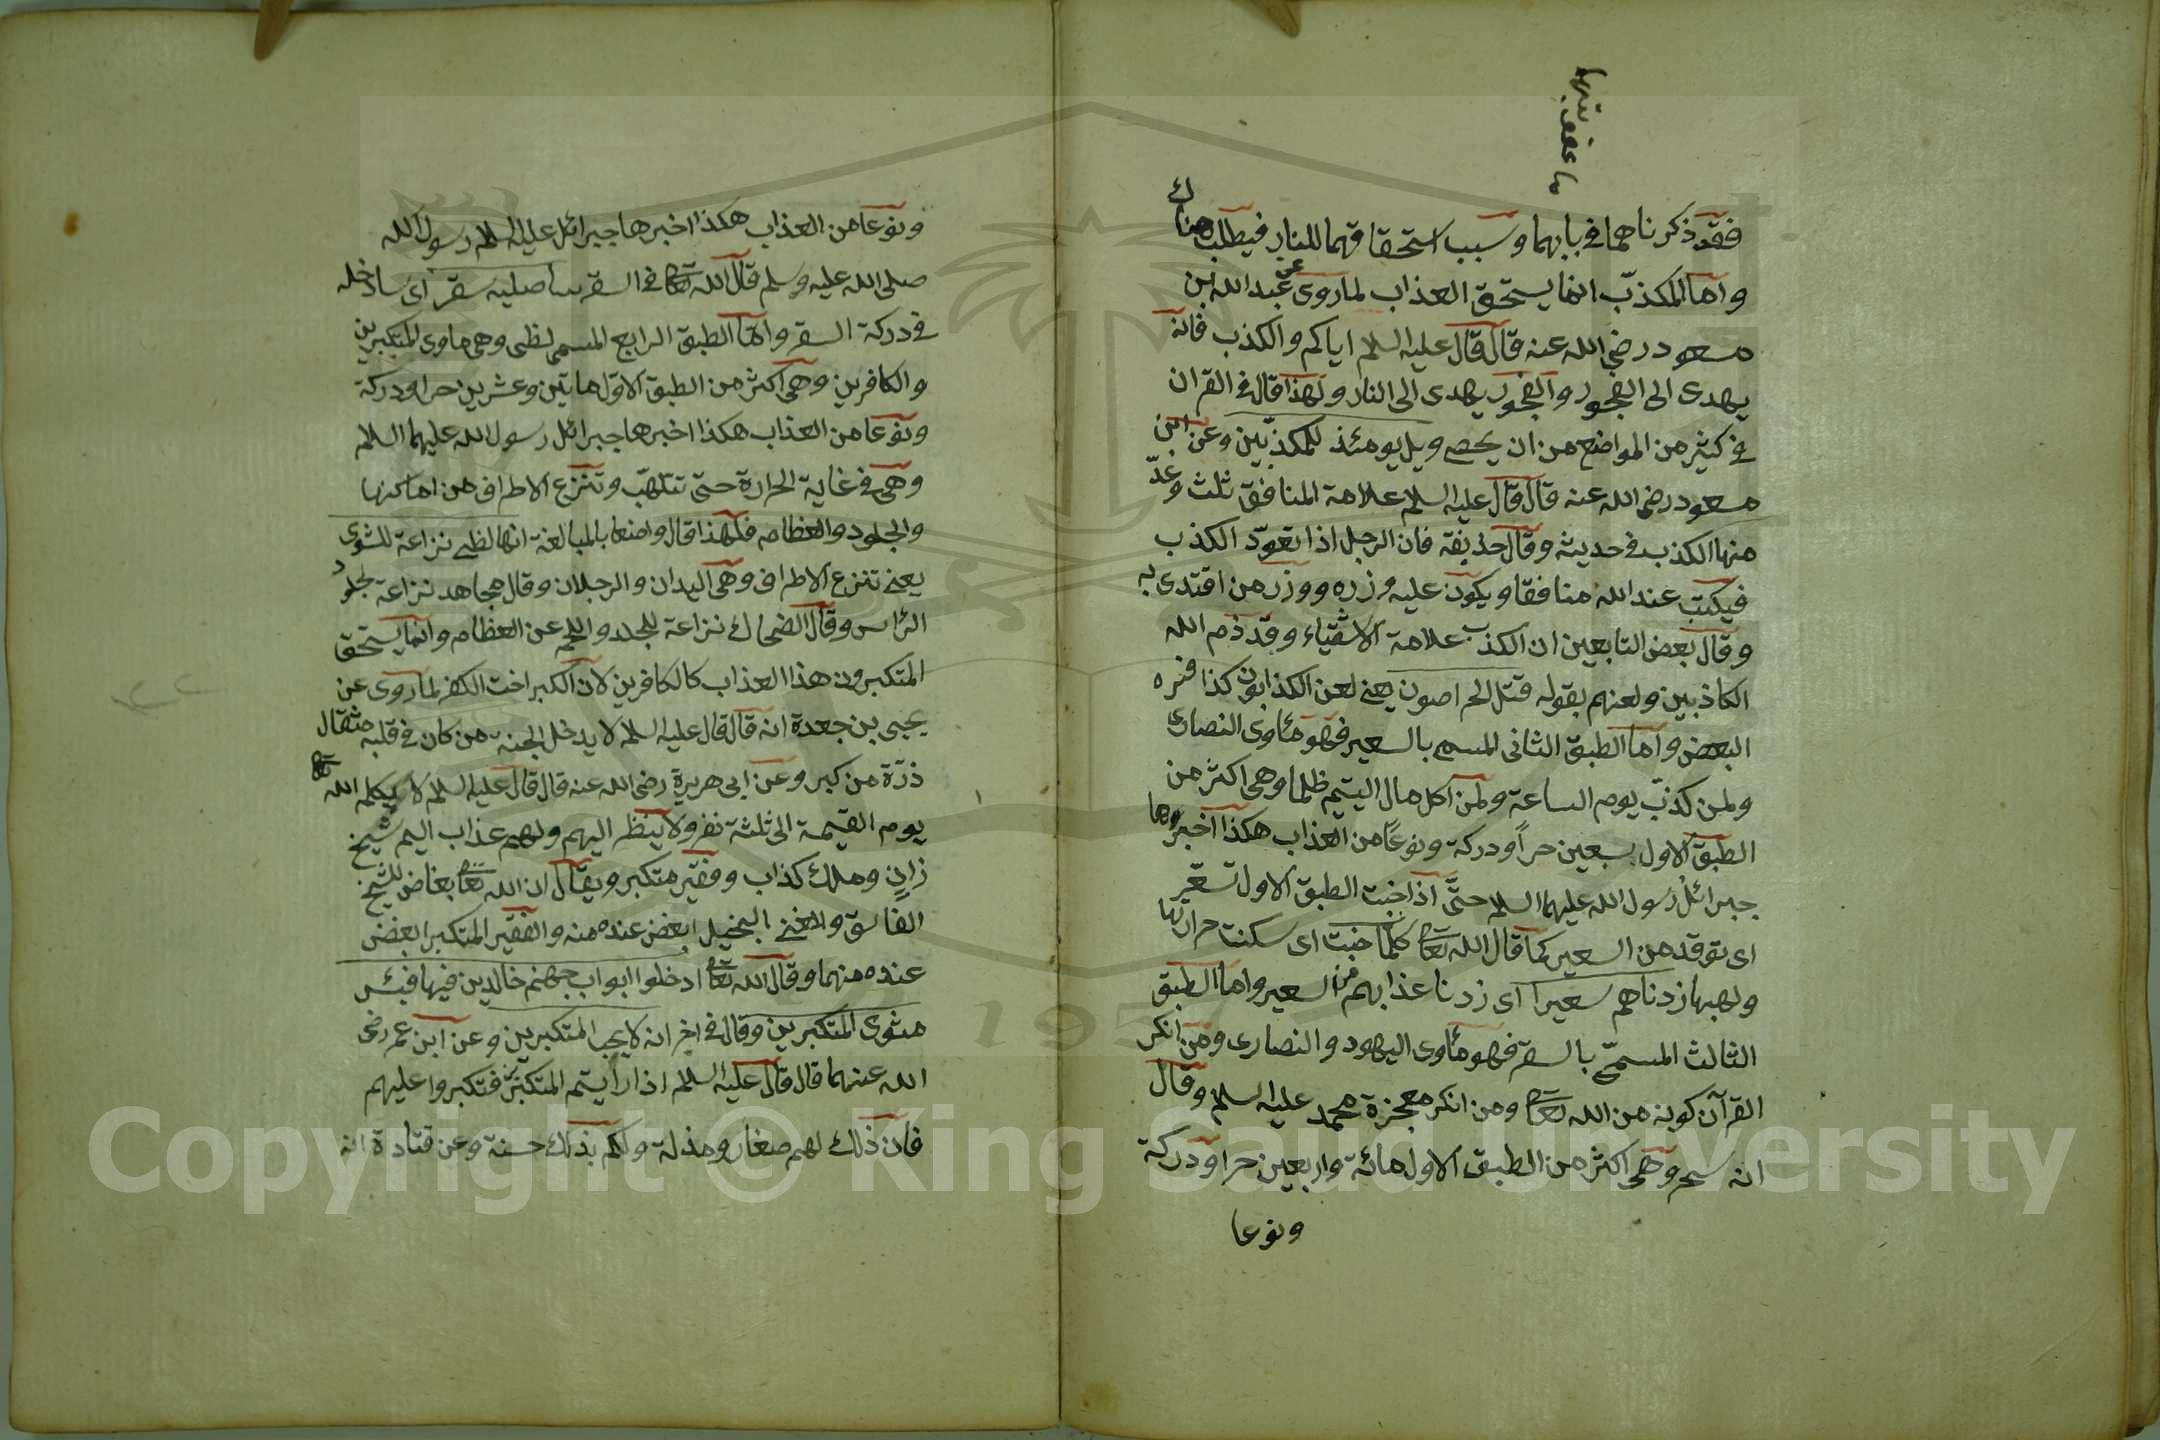 فقد ذكرناهما في بابهما وسبب استحقاقهما للنار فيطلب هناك
واما المكذب انما يستحق العذاب لما روى عن عبد الله ابن
مسعود رضي الله عنه قال قال عليه السلام اياكم والكذب فانه
يهدى الى الفجور والفجور يهدى الى النار ولهذا قال في القران
في كثير من المواضع من ان يحصى ويل يومئذ للمكذبين وعن ابن
مسعود رضي الله عنه قال قال عليه السلام علامة المنافق ثلث وعد
منها الكذب في حديثه وقال حذيفة فان الرجل اذا تعود الكذب
فيكتب عند الله منافقا ويكون عليه وزره ووزر من اقتدى به
وقال بعض التابعين ان الكذب علامة الاشقياء وقد ذم الله
الكاذبين ولعنهم بقوله قتل الخراصون يعني لعن الكذابون كذا فسره
البعض واما الطبق الثاني المسمى بالسعير فهو مأوى النصارى
ولمن كذب يوم الساعة ولمن اكل مال اليتيم ظلما وهى اكثر من
الطبق الاول بسبعين حراً ودركة ونوعاً من العذاب هكذا اخبرها
جبرائل رسول الله عليهما السلام حتى اذا خبت الطبق الاول تسعر
اى توقد من السعير كما قال الله تعالى كلما خبت اى سكنت حرارتها
ولهبها زدناهم سعيرا اى زدنا عذابهم من السعير واما الطبق
الثالث المسمى بالسقر فهو مأوى اليهود والنصارى ومن انكر
القرآن كونه من الله تعالى ومن انكر معجزة محمد عليه السلام وقال
انه سحر وهى اكثر من الطبق الاول مائة واربعين حرا ودركة
ونوعا
ونوعا من العذاب هكذا اخبرها جبرائل عليه السلام رسول الله
صلى الله عليه وسلم قال الله تعالى في السقر سأصليه سقر اى سادخله
في دركة السقر واما الطبق الرابع المسمى لظى وهى مأوى المتكبرين
والكافرين وهى اكثر من الطبق الاول مايتين وعشرين حرا ودركة
ونوعا من العذاب هكذا اخبرها جبرائل رسول الله عليهما السلام
وهى في غاية الحرارة حتى تتلهب وتنزع الاطراف من اماكنها
والجلود والعظام فلهذا قال واضعا بالمبالغة انها لظى نزاعة للشوى
يعنى تنزع الاطراف وهى اليدان والرجلان وقال مجاهد نزاعة لجلود
الرأس وقال الضحاك نزاعة للجلد واللحم عن العظام وانما يستحق
المتكبرون هذا العذاب كالكافرين لان الكبر اخت الكفر لما روى عن
يحيى بن جعدة انه قال قال عليه السلام لا يدخل الجنة من كان في قلبه مثقال
ذرّة من كبر وعن ابى هريرة رضى الله عنه قال قال عليه السلام لا يكلم الله تعالى
يوم القيمة الى ثلثة نفر ولا ينظر اليهم ولهم عذاب اليم شيخ
زانٍ وملك كذاب وفقير متكبر ويقال ان الله تعالى بغاض للشيخ
الفاسق والغنى البخيل ابغض عنده منه والفقير المتكبر ابغض
عنده منهما وقال الله تعالى ادخلوا ابواب جهنم خالدين فيها فبئس
مثوى المتكبرين وقال في اخر انه لا يحب المتكبرين وعن ابن عمر رضى
الله عنهما قال قال عليه السلام اذا رأيتم المتكبر فتكبروا عليهم
فان ذلك لهم صغار ومذلة ولكم بذلك حسنة وعن قتادة انه
Copyright © King Saud University
1957